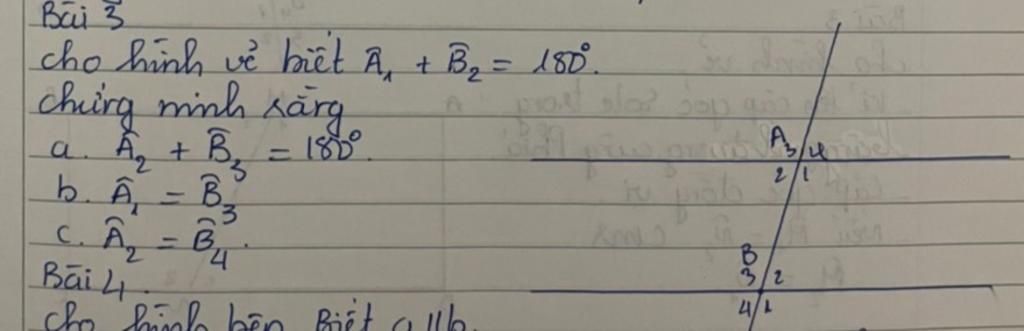 Bài 3
cho hình vẽ biết Â₁ + B̂₂ = 180°.
chứng minh rằng
a. Â₂ + B̂₃ = 180°.
b. Â₁ = B̂₃
c. Â₂ = B̂₄.
Bài 4.
cho hình bên Biết a//b.
A
3 4
2 1
B
3 2
4 1